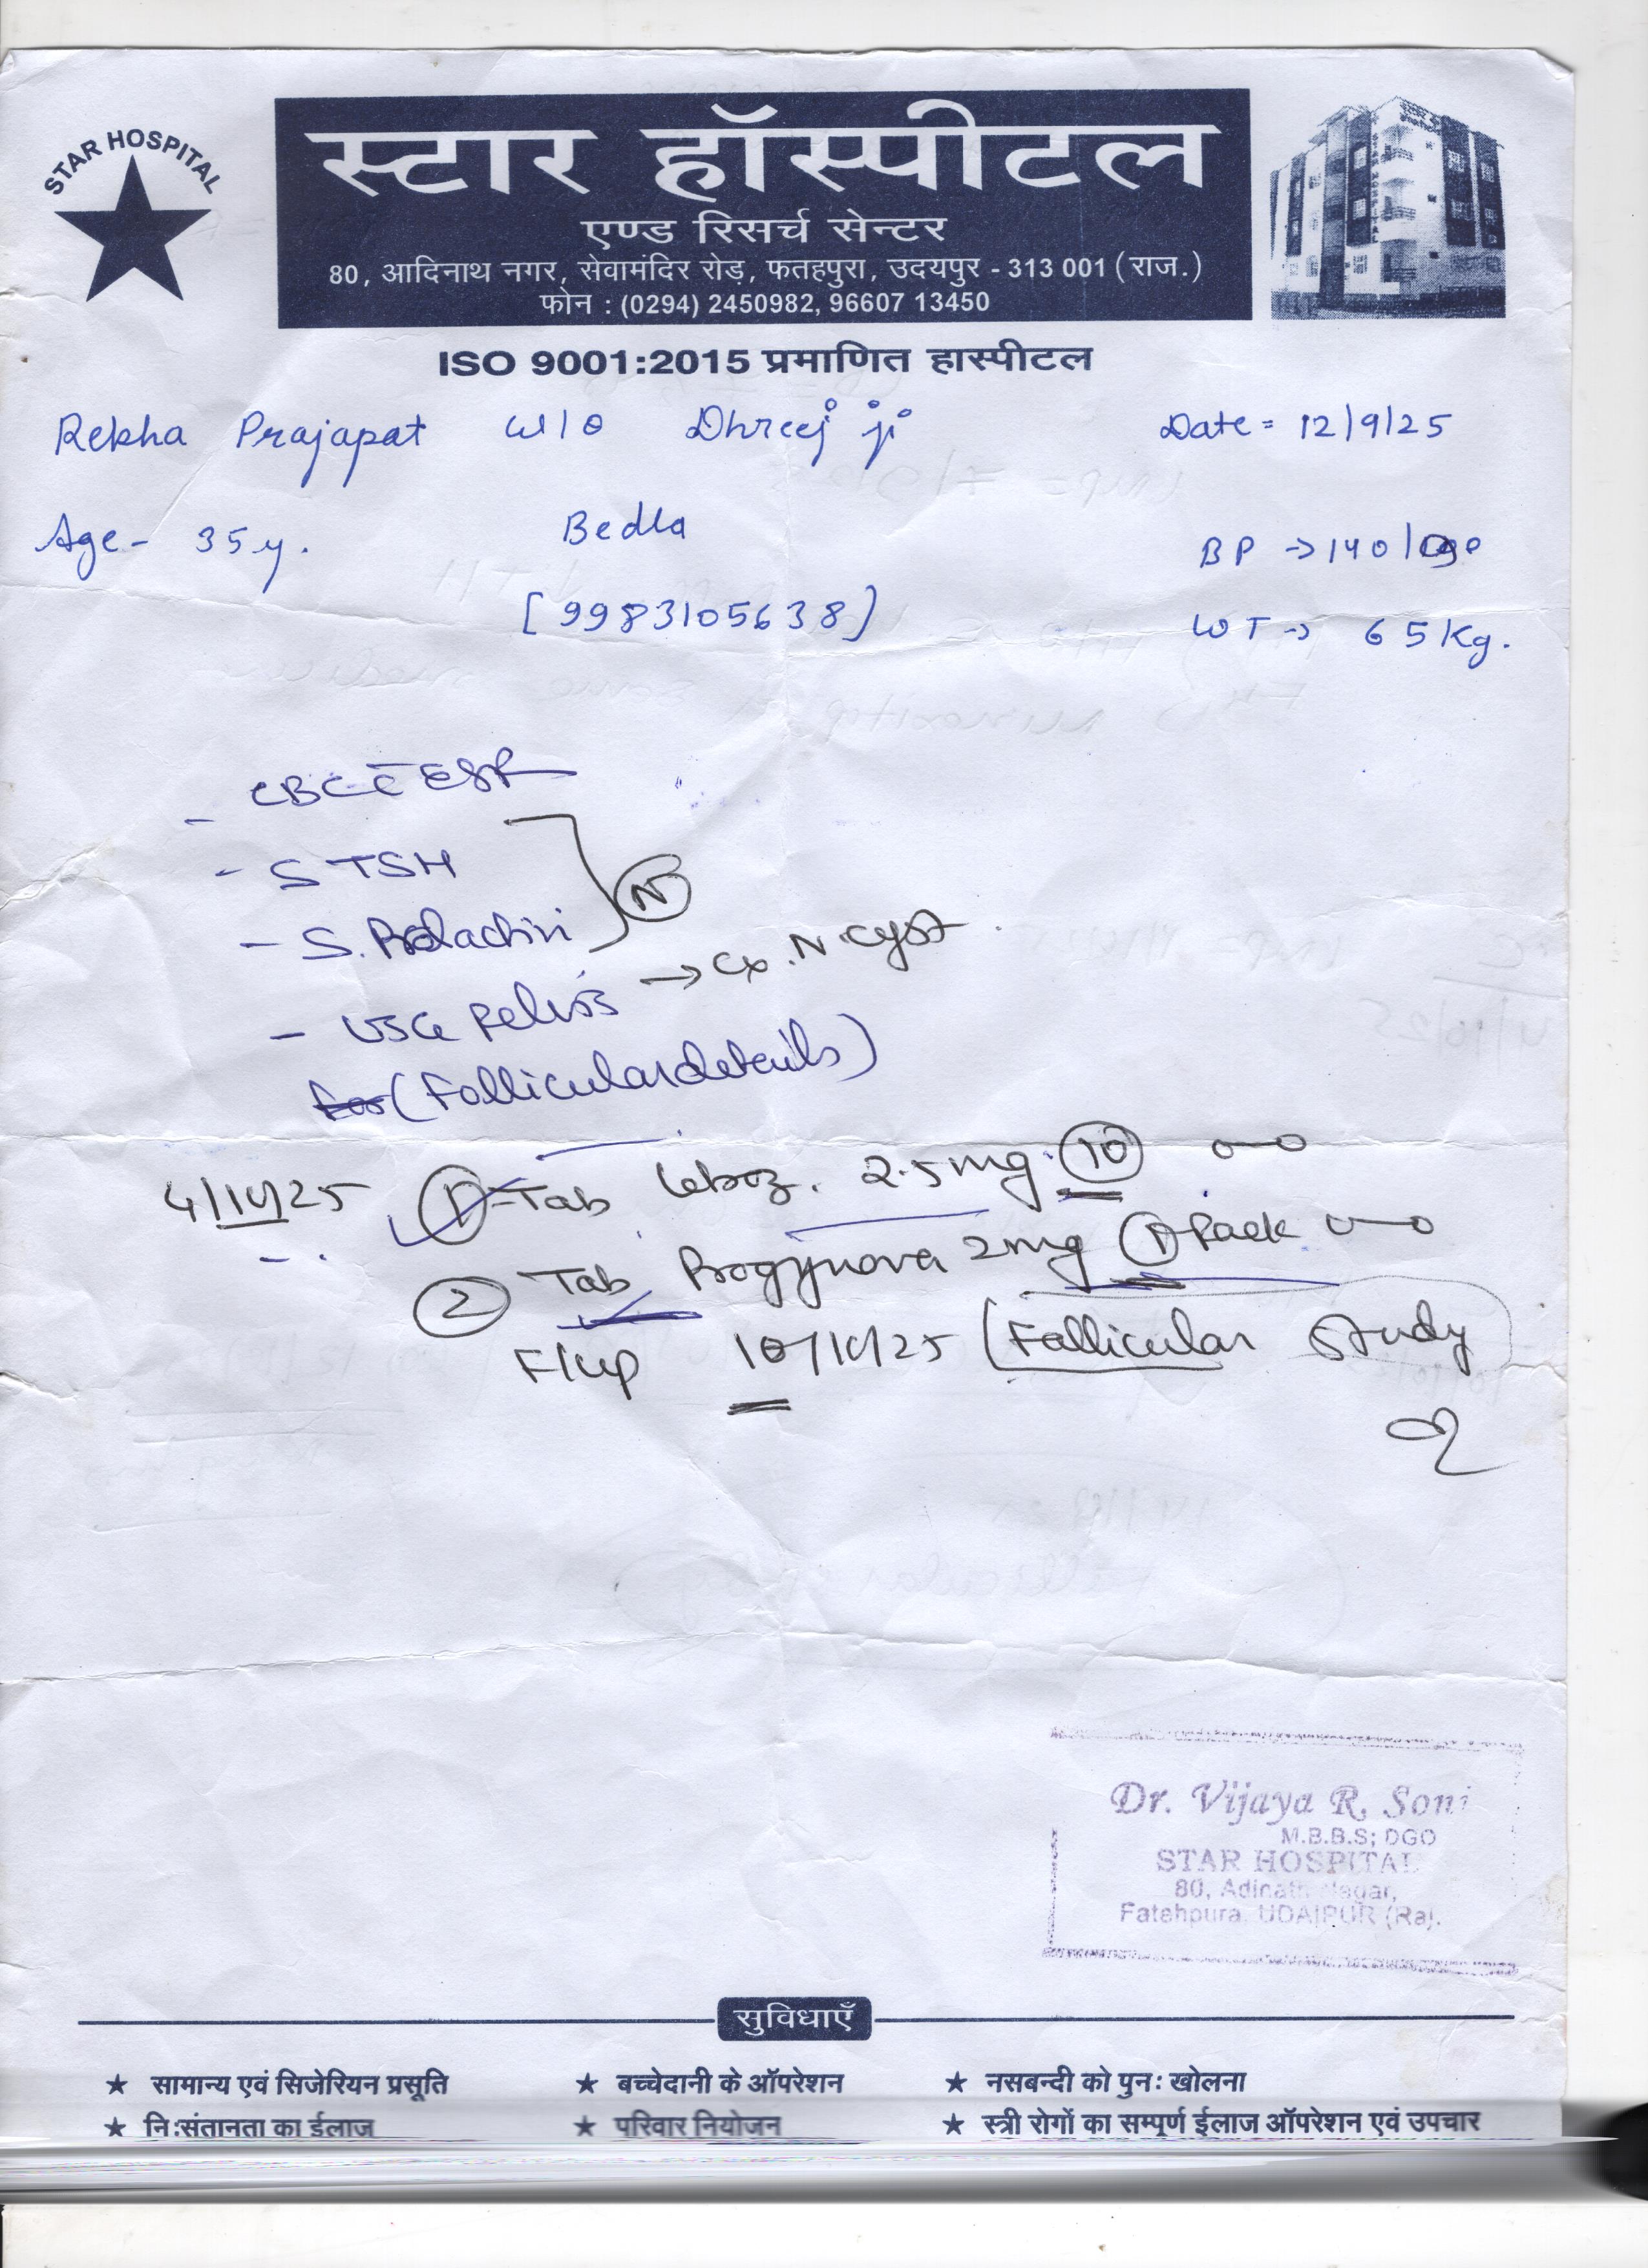 STAR HOSPITAL
स्टार हॉस्पीटल
एण्ड रिसर्च सेन्टर
80, आदिनाथ नगर, सेवामंदिर रोड़, फतहपुरा, उदयपुर - 313 001 (राज.)
फोन : (0294) 2450982, 96607 13450
ISO 9001:2015 प्रमाणित हास्पीटल
Rekha Prajapat w/o Dhreej ji Date = 12/9/25
Age - 35 y. Bedla BP → 140/
[9983105638] WT → 65 Kg.
- CBC c̄ ESR
- S TSH
- S. Prolactin N
- USG Pelvis → Cx. N. cyst
(Follicular details)
4/10/25 1 - Tab Leboz. 2.5 mg. 10 o—o
2 Tab Progynova 2mg 1 Pack o—o
F/up 10/10/25 (Follicular Study
Dr. Vijaya R. Soni
M.B.B.S; DGO
STAR HOSPITAL
80, Adinath Nagar,
Fatehpura, UDAIPUR (Raj.
सुविधाएँ
★ सामान्य एवं सिजेरियन प्रसूति ★ बच्चेदानी के ऑपरेशन ★ नसबन्दी को पुनः खोलना
★ निःसंतानता का ईलाज ★ परिवार नियोजन ★ स्त्री रोगों का सम्पूर्ण ईलाज ऑपरेशन एवं उपचार